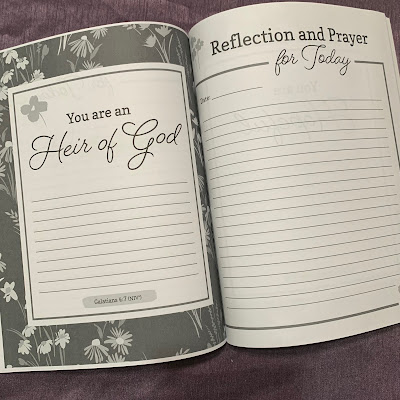 You are an
Heir of God
Galatians 4:7 (NIV)
Reflection and Prayer
for Today
Date: